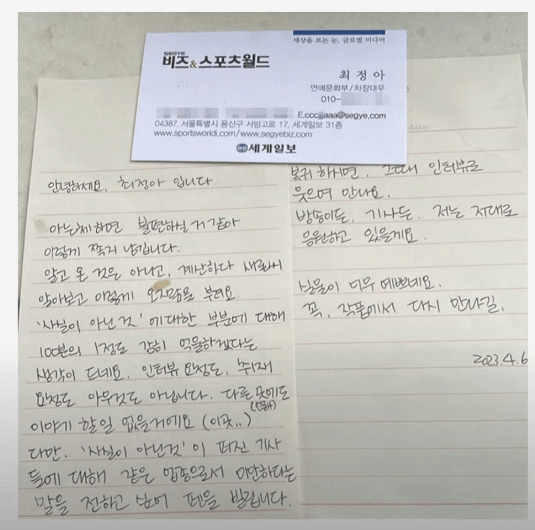 세상을 보는 눈, 글로벌 미디어
SEGYE
비즈&스포츠월드
최 정 아
연예문화부/차장대우
010-
E.cccjjaaa@segye.com
04387. 서울특별시 용산구 서빙고로 17, 세계일보 31층
www.sportsworldi.com/www.segyebiz.com
세계일보
안녕하세요. 최정아 입니다.
아는체하면 불편하실거 같아
이렇게 쪽지 남깁니다.
알고 온 것은 아니고, 계산하다
알아보고 이렇게 오지랖을 부려요
'사실이 아닌 것' 에 대한 부분에 대해
100분의 1정도 감히 억울하겠다는
생각이 드네요. 인터뷰 요청도, 취재
요청도 아무것도 아닙니다. 다른 곳에도
이야기 할일 없을거에요 (이곳..)
다만, '사실이 아닌것' 이 퍼진 기사
들에 대해 같은 업종으로서 미안하다는
말을 전하고 싶어 펜을 빌립니다.
date
복귀 하시면, 그때 인터뷰로
웃으며 만나요.
방송이든, 기사든. 저는 저대로
응원하고 있을게요.
실물이 너무 예쁘네요.
꼭, 작품에서 다시 만나길.
2023.4.6